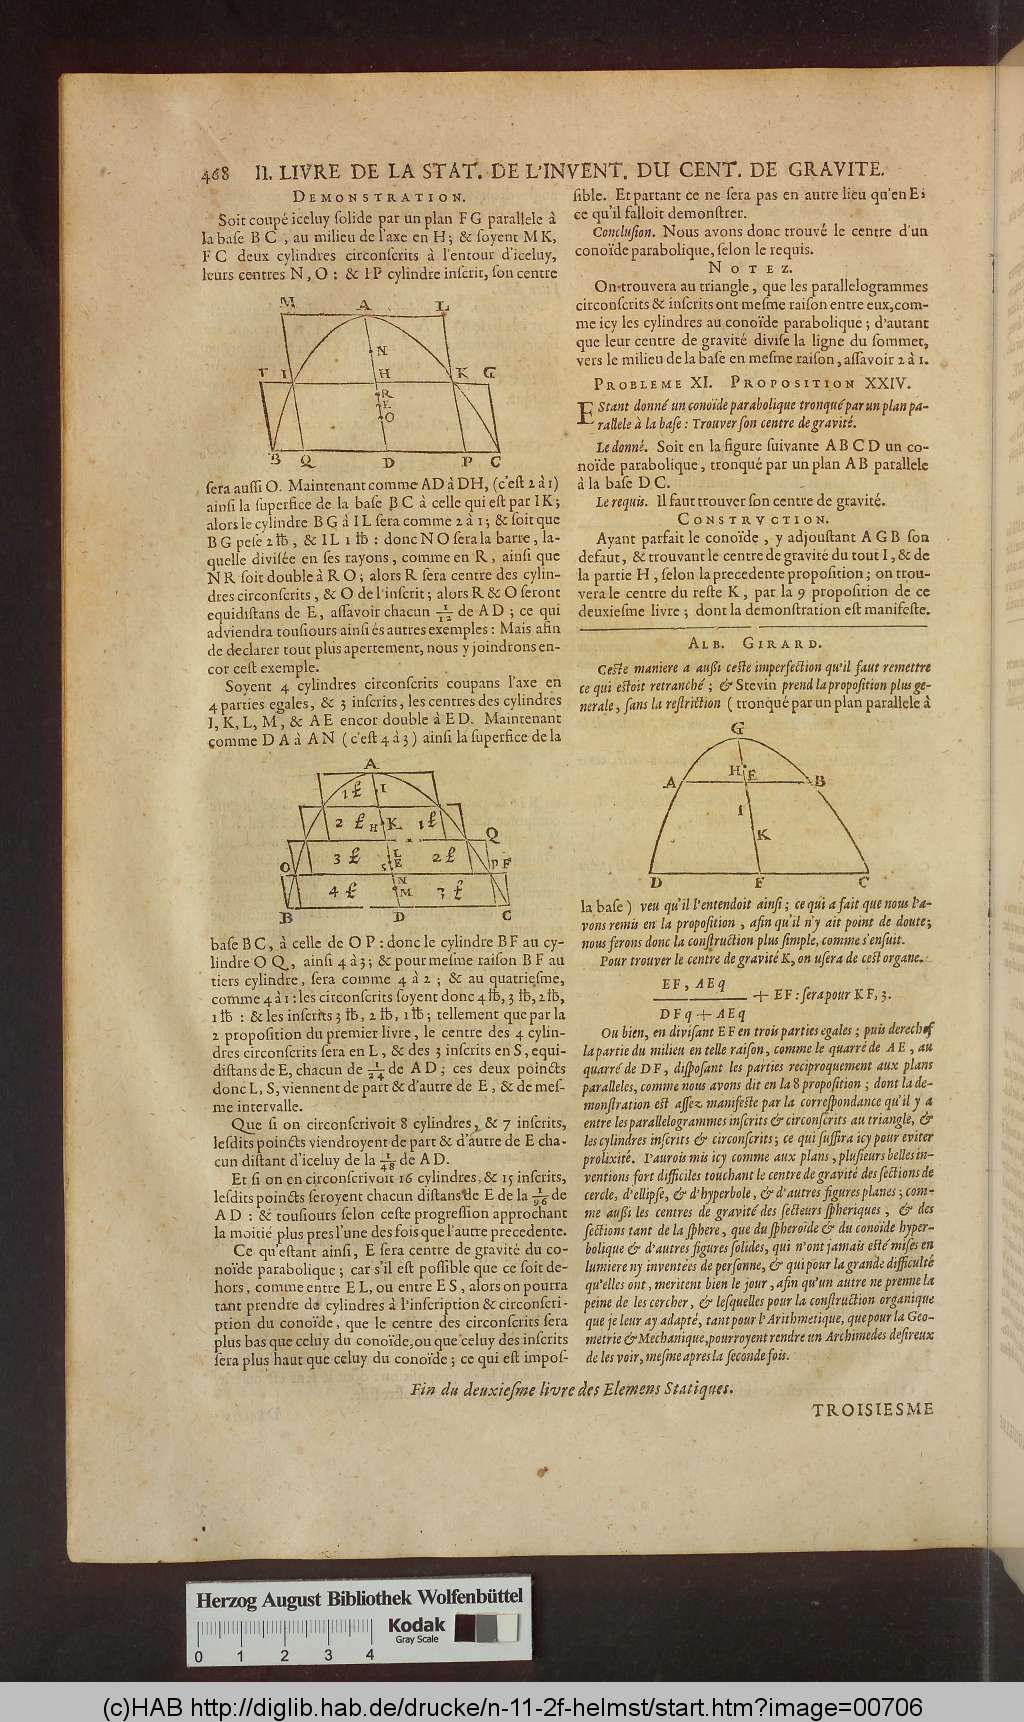 468 II. LIVRE DE LA STAT. DE L'INVENT. DU CENT. DE GRAVITE.
DEMONSTRATION.
Soit coupé iceluy ſolide par un plan F G parallele à
la baſe B C , au milieu de l'axe en H ; & ſoyent M K,
F C deux cylindres circonſcrits à l'entour d'iceluy,
leurs centres N, O : & I P cylindre inſcrit, ſon centre
M A L
N
F I H K G
R
E
O
B Q D P C
ſera auſſi O. Maintenant comme AD à DH, (c'eſt 2 à 1)
ainſi la ſuperfice de la baſe B C à celle qui eſt par I K ;
alors le cylindre B G à I L ſera comme 2 à 1 ; & ſoit que
B G peſe 2 ℔, & I L 1 ℔ : donc N O ſera la barre, la-
quelle diviſée en ſes rayons, comme en R, ainſi que
N R ſoit double à R O ; alors R ſera centre des cylin-
dres circonſcrits, & O de l'inſcrit ; alors R & O ſeront
equidiſtans de E, aſſavoir chacun 1/12 de A D ; ce qui
adviendra touſiours ainſi és autres exemples : Mais afin
de declarer tout plus apertement, nous y joindrons en-
cor ceſt exemple.
Soyent 4 cylindres circonſcrits coupans l'axe en
4 parties egales, & 3 inſcrits, les centres des cylindres
I, K, L, M, & A E encor double à E D. Maintenant
comme D A à A N ( c'eſt 4 à 3 ) ainſi la ſuperfice de la
A
1 ℔ I
2 ℔ H K 1 ℔
Q
3 ℔ L S E 2 ℔
O P F
4 ℔ N M 3 ℔
B D C
baſe B C, à celle de O P : donc le cylindre B F au cy-
lindre O Q, ainſi 4 à 3 ; & pour meſme raiſon B F au
tiers cylindre, ſera comme 4 à 2 ; & au quatrieſme,
comme 4 à 1 : les circonſcrits ſoyent donc 4 ℔, 3 ℔, 2 ℔,
1 ℔ : & les inſcrits 3 ℔, 2 ℔, 1 ℔ ; tellement que par la
2 propoſition du premier livre, le centre des 4 cylin-
dres circonſcrits ſera en L, & des 3 inſcrits en S, equi-
diſtans de E, chacun de 1/24 de A D ; ces deux poincts
donc L, S, viennent de part & d'autre de E, & de meſ-
me intervalle.
Que ſi on circonſcrivoit 8 cylindres, & 7 inſcrits,
leſdits poincts viendroyent de part & d'autre de E cha-
cun diſtant d'iceluy de la 1/48 de A D.
Et ſi on en circonſcrivoit 16 cylindres, & 15 inſcrits,
leſdits poincts ſeroyent chacun diſtans de E de la 1/96 de
A D : & touſiours ſelon ceſte progreſſion approchant
la moitié plus pres l'une des fois que l'autre precedente.
Ce qu'eſtant ainſi, E ſera centre de gravité du co-
noïde parabolique ; car s'il eſt poſſible que ce ſoit de-
hors, comme entre E L, ou entre E S, alors on pourra
tant prendre de cylindres à l'inſcription & circonſcri-
ption du conoïde, que le centre des circonſcrits ſera
plus bas que celuy du conoïde, ou que celuy des inſcrits
ſera plus haut que celuy du conoïde ; ce qui eſt impoſ-
ſible. Et partant ce ne ſera pas en autre lieu qu'en E ;
ce qu'il falloit demonſtrer.
Concluſion. Nous avons donc trouvé le centre d'un
conoïde parabolique, ſelon le requis.
NOTEZ.
On trouvera au triangle, que les parallelogrammes
circonſcrits & inſcrits ont meſme raiſon entre eux, com-
me icy les cylindres au conoïde parabolique ; d'autant
que leur centre de gravité diviſe la ligne du ſommet,
vers le milieu de la baſe en meſme raiſon, aſſavoir 2 à 1.
PROBLEME XI. PROPOSITION XXIV.
EStant donné un conoïde parabolique tronqué par un plan pa-
rallele à la baſe : Trouver ſon centre de gravité.
Le donné. Soit en la figure ſuivante A B C D un co-
noïde parabolique, tronqué par un plan A B parallele
à la baſe D C.
Le requis. Il faut trouver ſon centre de gravité.
CONSTRVCTION.
Ayant parfait le conoïde, y adjouſtant A G B ſon
defaut, & trouvant le centre de gravité du tout I, & de
la partie H, ſelon la precedente propoſition ; on trou-
vera le centre du reſte K, par la 9 propoſition de ce
deuxieſme livre ; dont la demonſtration eſt manifeſte.
ALB. GIRARD.
Ceſte maniere a auſsi ceſte imperfection qu'il faut remettre
ce qui eſtoit retranché ; & Stevin prend la propoſition plus ge-
nerale, ſans la reſtriction ( tronqué par un plan parallele à
G
A H E B
I
K
D F C
la baſe ) veu qu'il l'entendoit ainſi ; ce qui a fait que nous l'a-
vons remis en la propoſition, afin qu'il n'y ait point de doute ;
nous ferons donc la conſtruction plus ſimple, comme s'enſuit.
Pour trouver le centre de gravité K, on uſera de ceſt organe.
EF, AEq
+ EF : ſera pour KF, 3.
DFq + AEq
Ou bien, en diviſant E F en trois parties egales ; puis derechef
la partie du milieu en telle raiſon, comme le quarré de A E, au
quarré de D F, diſpoſant les parties reciproquement aux plans
paralleles, comme nous avons dit en la 8 propoſition ; dont la de-
monſtration eſt aſſez manifeſte par la correſpondance qu'il y a
entre les parallelogrammes inſcrits & circonſcrits au triangle, &
les cylindres inſcrits & circonſcrits ; ce qui ſuffira icy pour eviter
prolixité. I'aurois mis icy comme aux plans, pluſieurs belles in-
ventions fort difficiles touchant le centre de gravité des ſections de
cercle, d'ellipſe, & d'hyperbole, & d'autres figures planes ; com-
me auſsi les centres de gravité des ſecteurs ſpheriques, & des
ſections tant de la ſphere, que du ſpheroide & du conoide hyper-
bolique & d'autres figures ſolides, qui n'ont jamais eſté miſes en
lumiere ny inventées de perſonne, & qui pour la grande difficulté
qu'elles ont, meritent bien le jour, afin qu'un autre ne prenne la
peine de les cercher, & leſquelles pour la conſtruction organique
que je leur ay adapté, tant pour l'Arithmetique, que pour la Geo-
metrie & Mechanique, pourroyent rendre un Archimedes deſireux
de les voir, meſme apres la ſeconde fois.
Fin du deuxieſme livre des Elemens Statiques.
TROISIESME
Herzog August Bibliothek Wolfenbüttel
Kodak
Gray Scale
0 1 2 3 4
(c)HAB http://diglib.hab.de/drucke/n-11-2f-helmst/start.htm?image=00706